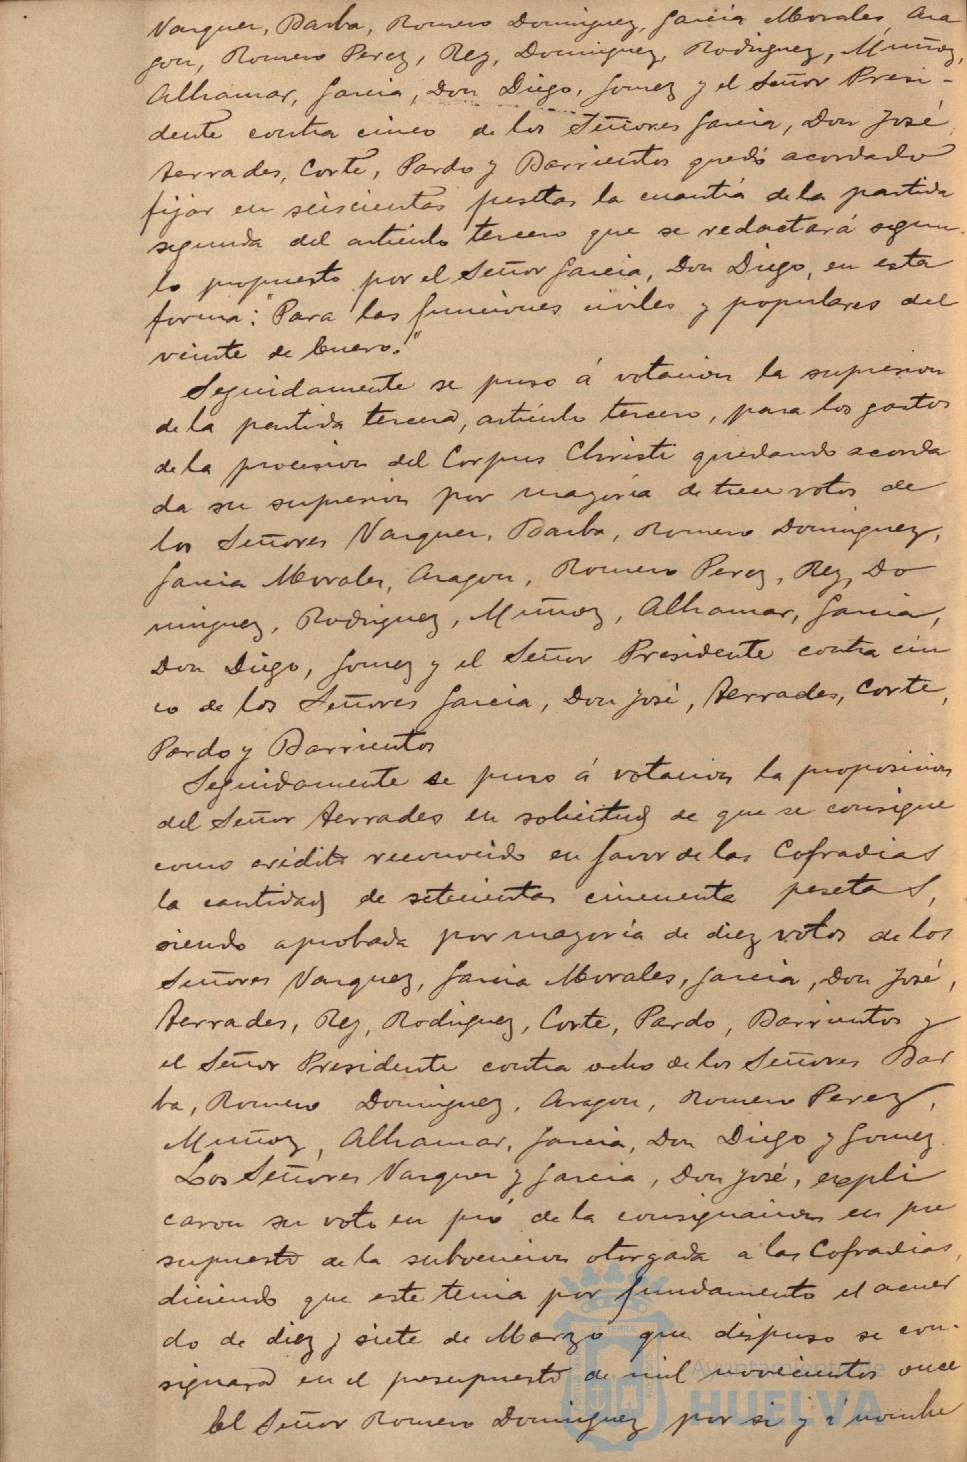 Vazquez, Barba, Romero Dominguez, Garcia Morales, Ara
gon, Romero Perez, Rey, Dominguez, Rodriguez, Muñoz,
Alhamar, Garcia, Don Diego, Gomez y el Señor Presi-
dente contra cinco de los Señores Garcia, Don José,
Terrades, Corte, Pardo y Barrientos quedó acordado
fijar en seiscientas pesetas la cuantía de la partida
segunda del articulo tercero que se redactará segun
lo propuesto por el Señor Garcia, Don Diego, en esta
forma: "Para las funciones civiles y populares del
veinte de Enero."
Seguidamente se puso á votacion la supresion
de la partida tercera, artículo tercero, para los gastos
de la procesion del Corpus Christi quedando acorda
da su supresion por mayoria de trece votos de
los Señores Vazquez, Barba, Romero Dominguez,
Garcia Morales, Aragon, Romero Perez, Rey, Do
minguez, Rodriguez, Muñoz, Alhamar, Garcia,
Don Diego, Gomez y el Señor Presidente contra cin
co de los Señores Garcia, Don José, Terrades, Corte,
Pardo y Barrientos
Seguidamente se puso á votacion la proposicion
del Señor Terrades en solicitud de que se consigne
como crédito reconocido en favor de las Cofradias
la cantidad de setecientas cincuenta pesetas,
siendo aprobada por mayoría de diez votos de los
Señores Vazquez, Garcia Morales, Garcia, Don José,
Terrades, Rey, Rodriguez, Corte, Pardo, Barrientos y
el Señor Presidente contra ocho de los Señores Bar
ba, Romero Dominguez, Aragon, Romero Perez,
Muñoz, Alhamar, Garcia, Don Diego y Gomez.
Los Señores Vazquez y Garcia, Don José, expli
caron su voto en pró de la consignacion en pre
supuesto de la subvencion otorgada a las Cofradias,
diciendo que este tenia por fundamento el acuer
do de diez y siete de Marzo que dispuso se con-
signara en el presupuesto de mil novecientos once
El Señor Romero Dominguez por si y á nombre
Ayuntamiento de
HUELVA